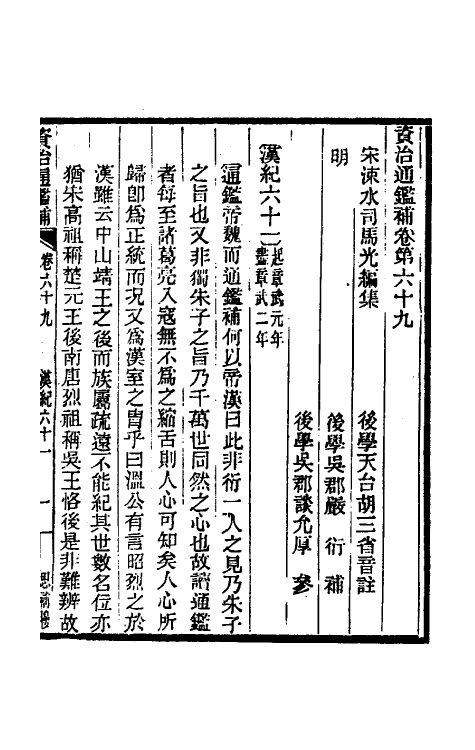 資治通鑑補卷第六十九
宋涑水司馬光編集
後學天台胡三省音註
明
後學吳郡嚴 衍 補
後學吳郡談允厚 參
漢紀六十一起章武元年盡章武二年
通鑑帝魏而通鑑補何以帝漢曰此非衍一人之見乃朱子
之旨也又非獨朱子之旨乃千萬世同然之心也故讀通鑑
者每至諸葛亮入寇無不爲之縮舌則人心可知矣人心所
歸卽爲正統而况又爲漢室之胄乎曰溫公有言昭烈之於
漢雖云中山靖王之後而族屬疏遠不能紀其世數名位亦
猶宋高祖稱楚元王後南唐烈祖稱吳王恪後是非難辨故
資治通鑑補 卷六十九 漢紀六十一 一 思補樓